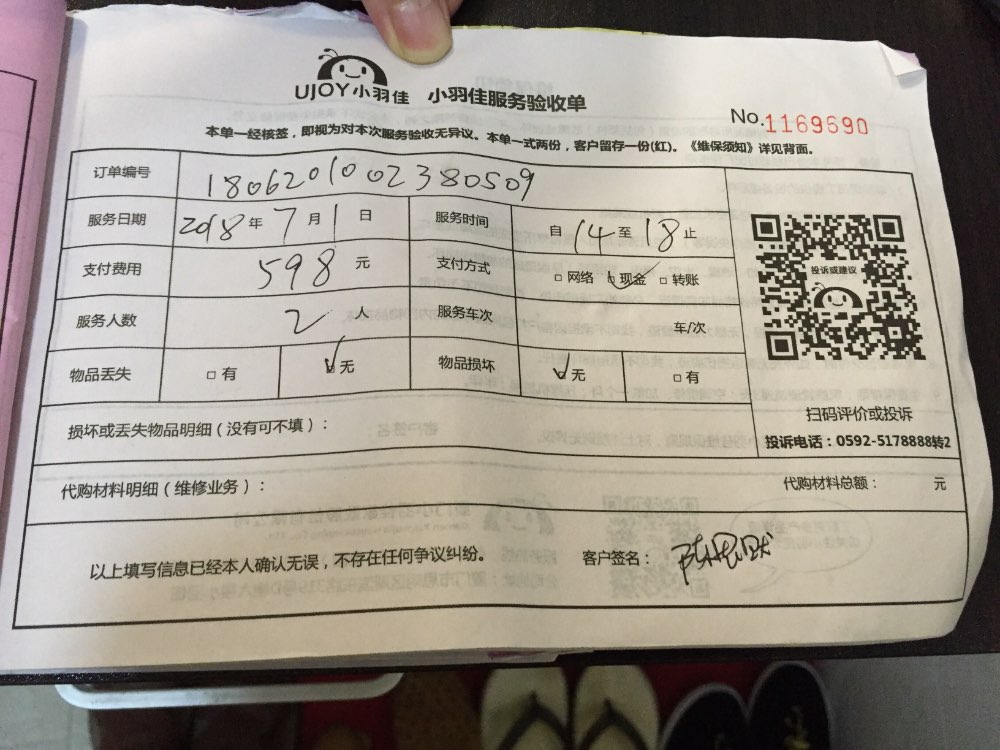 UJOY小羽佳 小羽佳服务验收单
No.1169690
本单一经核签，即视为对本次服务验收无异议。本单一式两份，客户留存一份(红)。《维保须知》详见背面。
订单编号 1806201002380509
服务日期 2018年7月1日 服务时间 自14至18止
支付费用 598元 支付方式 □网络 ☑现金 □转账
服务人数 2人 服务车次 车/次
物品丢失 □有 ☑无 物品损坏 ☑无 □有
投诉或建议
扫码评价或投诉
投诉电话：0592-5178888转2
损坏或丢失物品明细（没有可不填）：
代购材料明细（维修业务）： 代购材料总额： 元
以上填写信息已经本人确认无误，不存在任何争议纠纷。 客户签名：